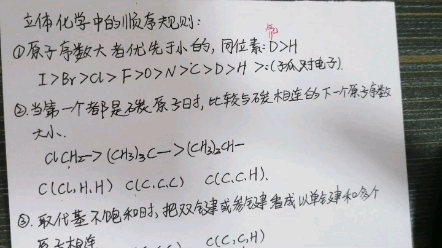 立体化学中的顺序规则:
氘
①原子序数大者优先于小的,同位素:D>H
I>Br>Cl>F>O>N>C>D>H >:(孤对电子).
②.当第一个都是碳原子时,比较与碳相连的下一个原子序数
大小.
ClCH₂—>(CH₃)₃C—>(CH₃)₂CH—
C(Cl,H,H) C(C,C,C) C(C,C,H).
③.取代基不饱和时,把双键或叁键看成以单键和多个
原子相连 C(C,C,H)